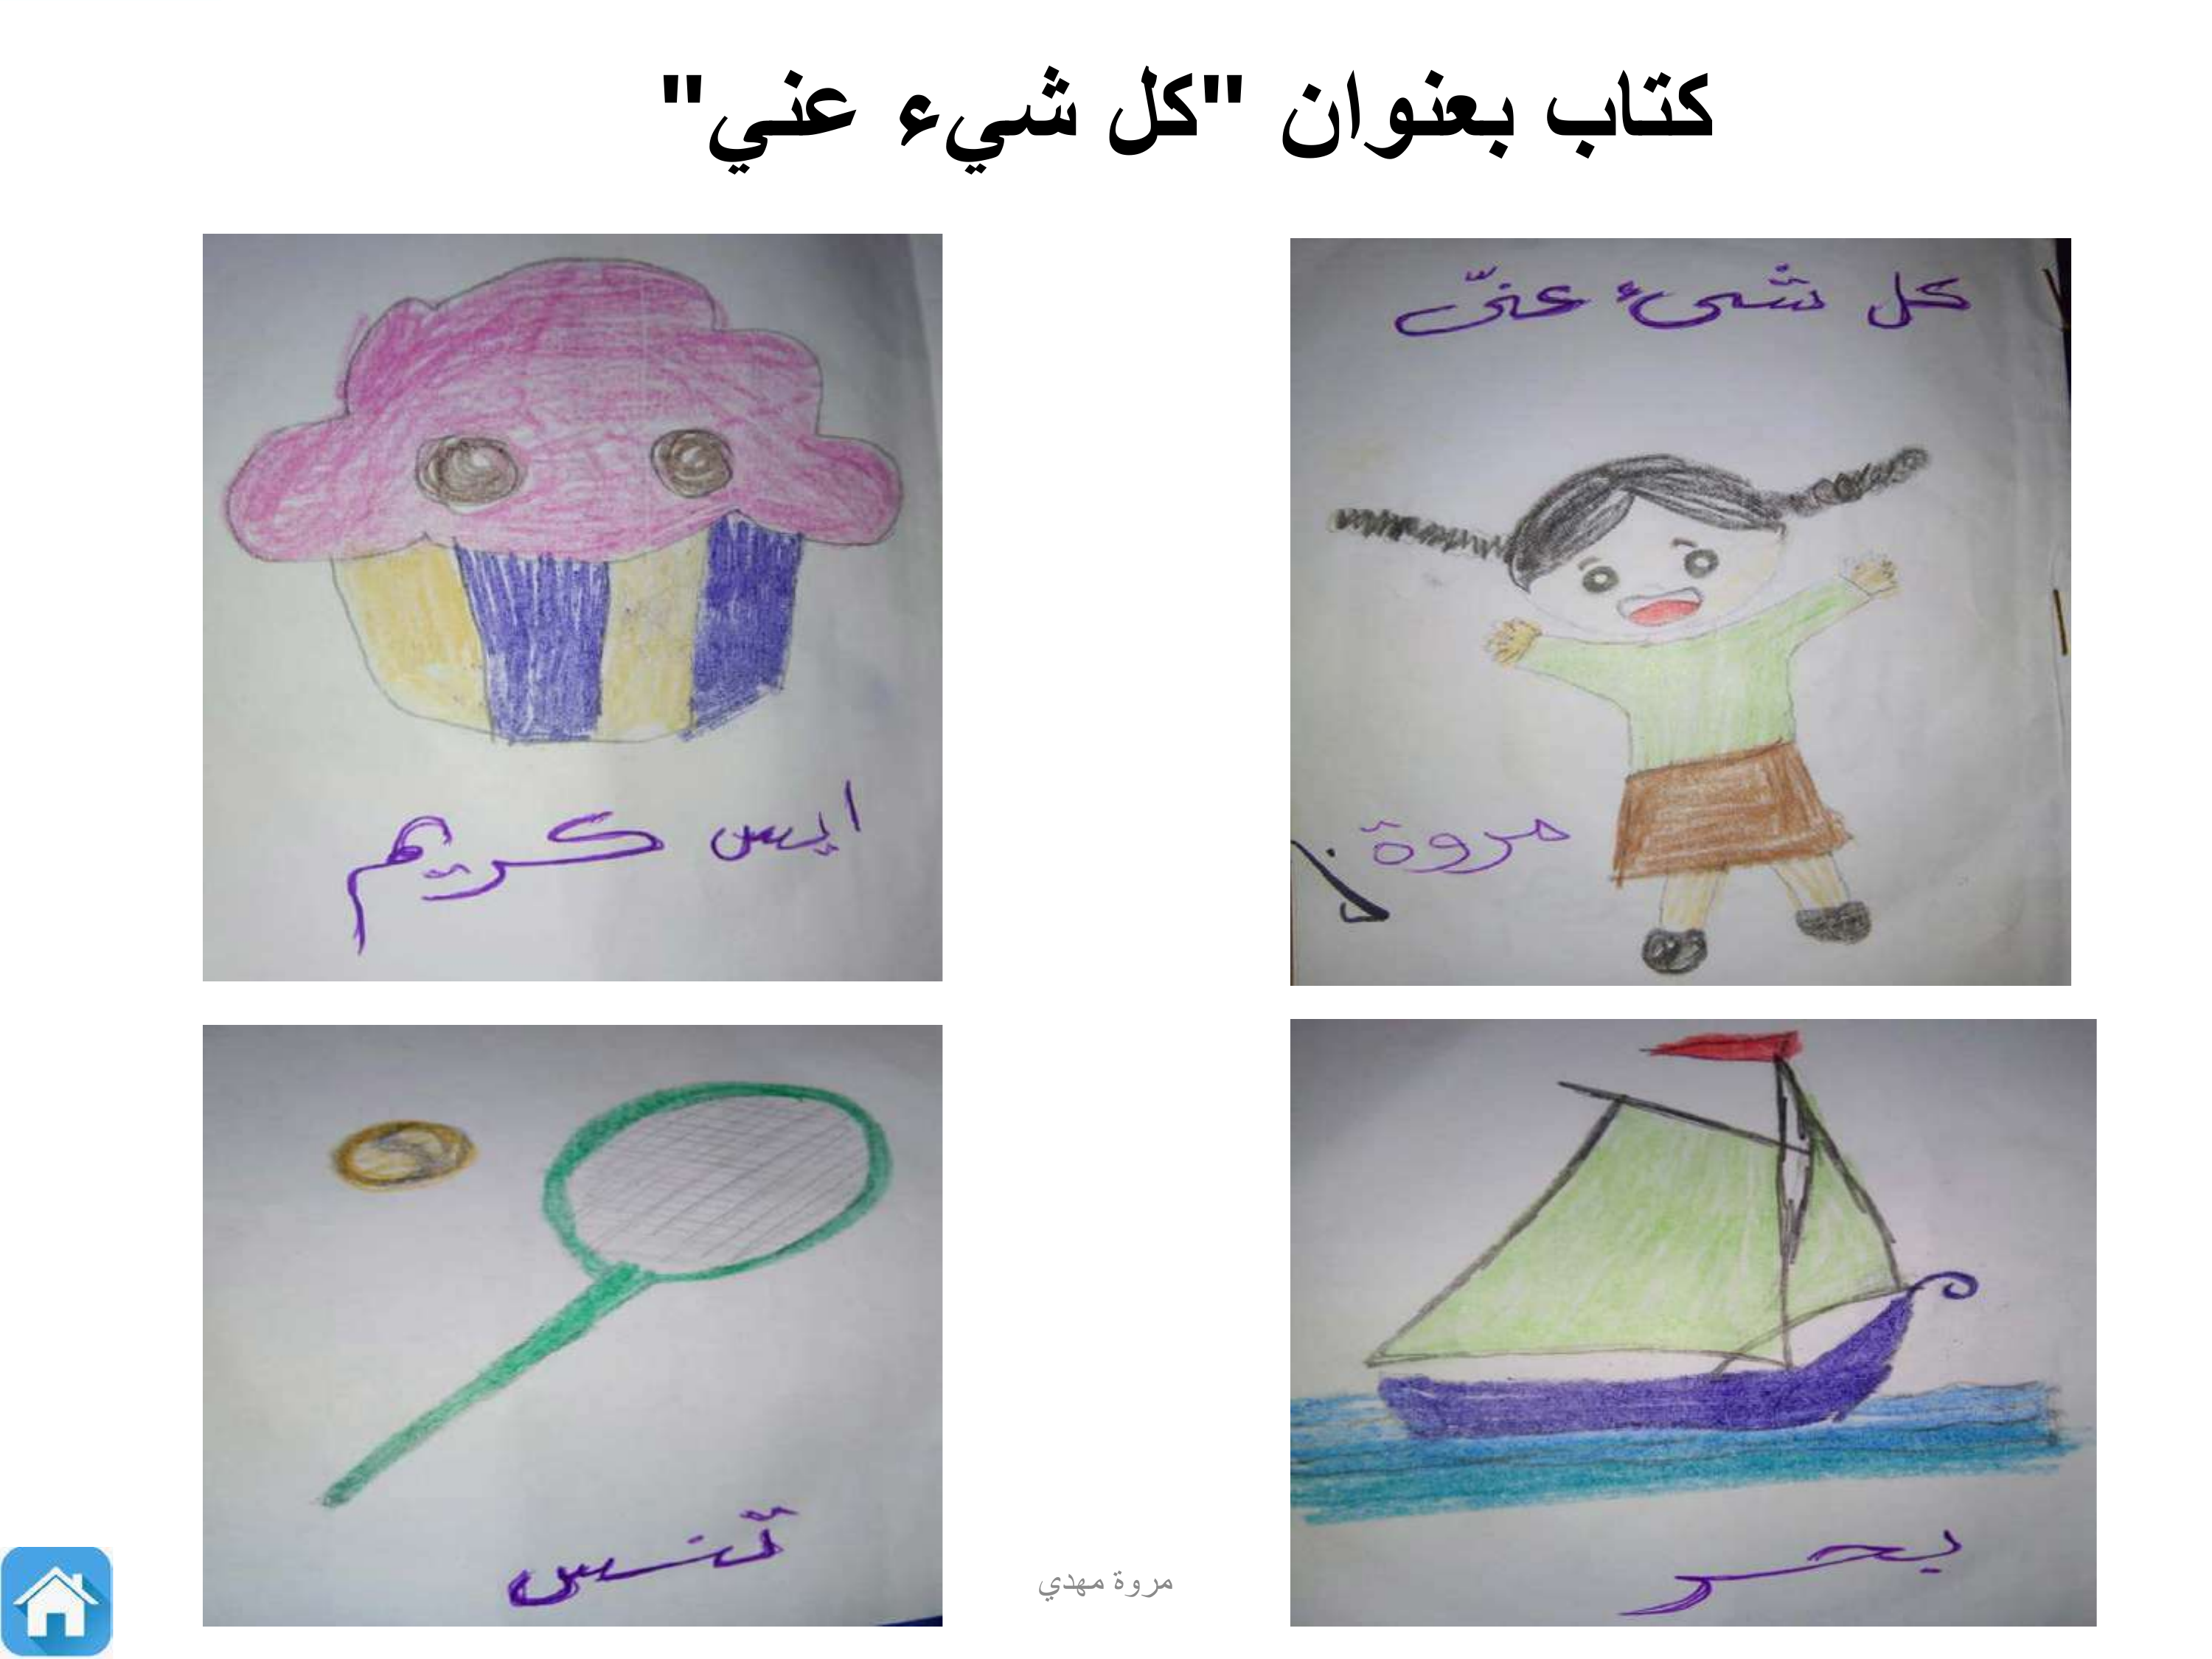 كتاب بعنوان "كل شيء عني"
كل شئ عنّي
مروة
ايس كريم
بحر
تنس
مروة مهدي